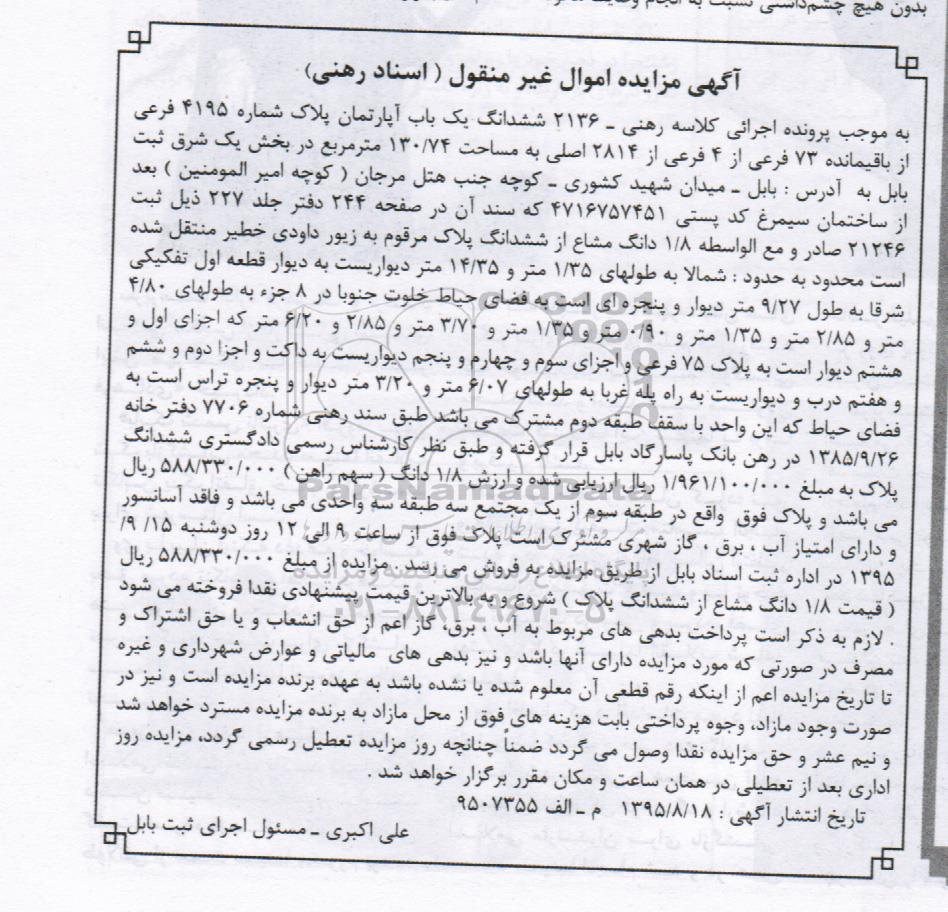 بدون هیچ چشم‌داشتی نسبت به انجام
آگهی مزایده اموال غیر منقول ( اسناد رهنی)
به موجب پرونده اجرائی کلاسه رهنی ـ ۲۱۳۶ ششدانگ یک باب آپارتمان پلاک شماره ۴۱۹۵ فرعی
از باقیمانده ۷۳ فرعی از ۴ فرعی از ۲۸۱۴ اصلی به مساحت ۱۳۰/۷۴ مترمربع در بخش یک شرق ثبت
بابل به آدرس : بابل ـ میدان شهید کشوری ـ کوچه جنب هتل مرجان ( کوچه امیر المومنین ) بعد
از ساختمان سیمرغ کد پستی ۴۷۱۶۷۵۷۴۵۱ که سند آن در صفحه ۲۴۴ دفتر جلد ۲۲۷ ذیل ثبت
۲۱۲۴۶ صادر و مع الواسطه ۱/۸ دانگ مشاع از ششدانگ پلاک مرقوم به زیور داودی خطیر منتقل شده
است محدود به حدود : شمالا به طولهای ۱/۳۵ متر و ۱۴/۳۵ متر دیواریست به دیوار قطعه اول تفکیکی
شرقا به طول ۹/۲۷ متر دیوار و پنجره ای است به فضای حیاط خلوت جنوبا در ۸ جزء به طولهای ۴/۸۰
متر و ۲/۸۵ متر و ۱/۳۵ متر و ۰/۹۰ متر و ۱/۳۵ متر و ۳/۷۰ متر و ۲/۸۵ و ۶/۲۰ متر که اجزای اول و
هشتم دیوار است به پلاک ۷۵ فرعی و اجزای سوم و چهارم و پنجم دیواریست به داکت و اجزا دوم و ششم
و هفتم درب و دیواریست به راه پله غربا به طولهای ۶/۰۷ متر و ۳/۲۰ متر دیوار و پنجره تراس است به
فضای حیاط که این واحد با سقف طبقه دوم مشترک می باشد طبق سند رهنی شماره ۷۷۰۶ دفتر خانه
۱۳۸۵/۹/۲۶ در رهن بانک پاسارگاد بابل قرار گرفته و طبق نظر کارشناس رسمی دادگستری ششدانگ
پلاک به مبلغ ۱/۹۶۱/۱۰۰/۰۰۰ ریال ارزیابی شده و ارزش ۱/۸ دانگ ( سهم راهن ) ۵۸۸/۳۳۰/۰۰۰ ریال
می باشد و پلاک فوق واقع در طبقه سوم از یک مجتمع سه طبقه سه واحدی می باشد و فاقد آسانسور
و دارای امتیاز آب ، برق ، گاز شهری مشترک است پلاک فوق از ساعت ۹ الی ۱۲ روز دوشنبه ۱۵/ ۹/
۱۳۹۵ در اداره ثبت اسناد بابل از طریق مزایده به فروش می رسد . مزایده از مبلغ ۵۸۸/۳۳۰/۰۰۰ ریال
( قیمت ۱/۸ دانگ مشاع از ششدانگ پلاک ) شروع و به بالاترین قیمت پیشنهادی نقدا فروخته می شود
. لازم به ذکر است پرداخت بدهی های مربوط به آب ، برق، گاز اعم از حق انشعاب و یا حق اشتراک و
مصرف در صورتی که مورد مزایده دارای آنها باشد و نیز بدهی های مالیاتی و عوارض شهرداری و غیره
تا تاریخ مزایده اعم از اینکه رقم قطعی آن معلوم شده یا نشده باشد به عهده برنده مزایده است و نیز در
صورت وجود مازاد، وجوه پرداختی بابت هزینه های فوق از محل مازاد به برنده مزایده مسترد خواهد شد
و نیم عشر و حق مزایده نقدا وصول می گردد ضمناً چنانچه روز مزایده تعطیل رسمی گردد، مزایده روز
اداری بعد از تعطیلی در همان ساعت و مکان مقرر برگزار خواهد شد .
تاریخ انتشار آگهی : ۱۳۹۵/۸/۱۸ م ـ الف ۹۵۰۷۳۵۵
علی اکبری ـ مسئول اجرای ثبت بابل
ParsNamadData
۰۲۱-۸۸۳۴۹۶۷۰-۵